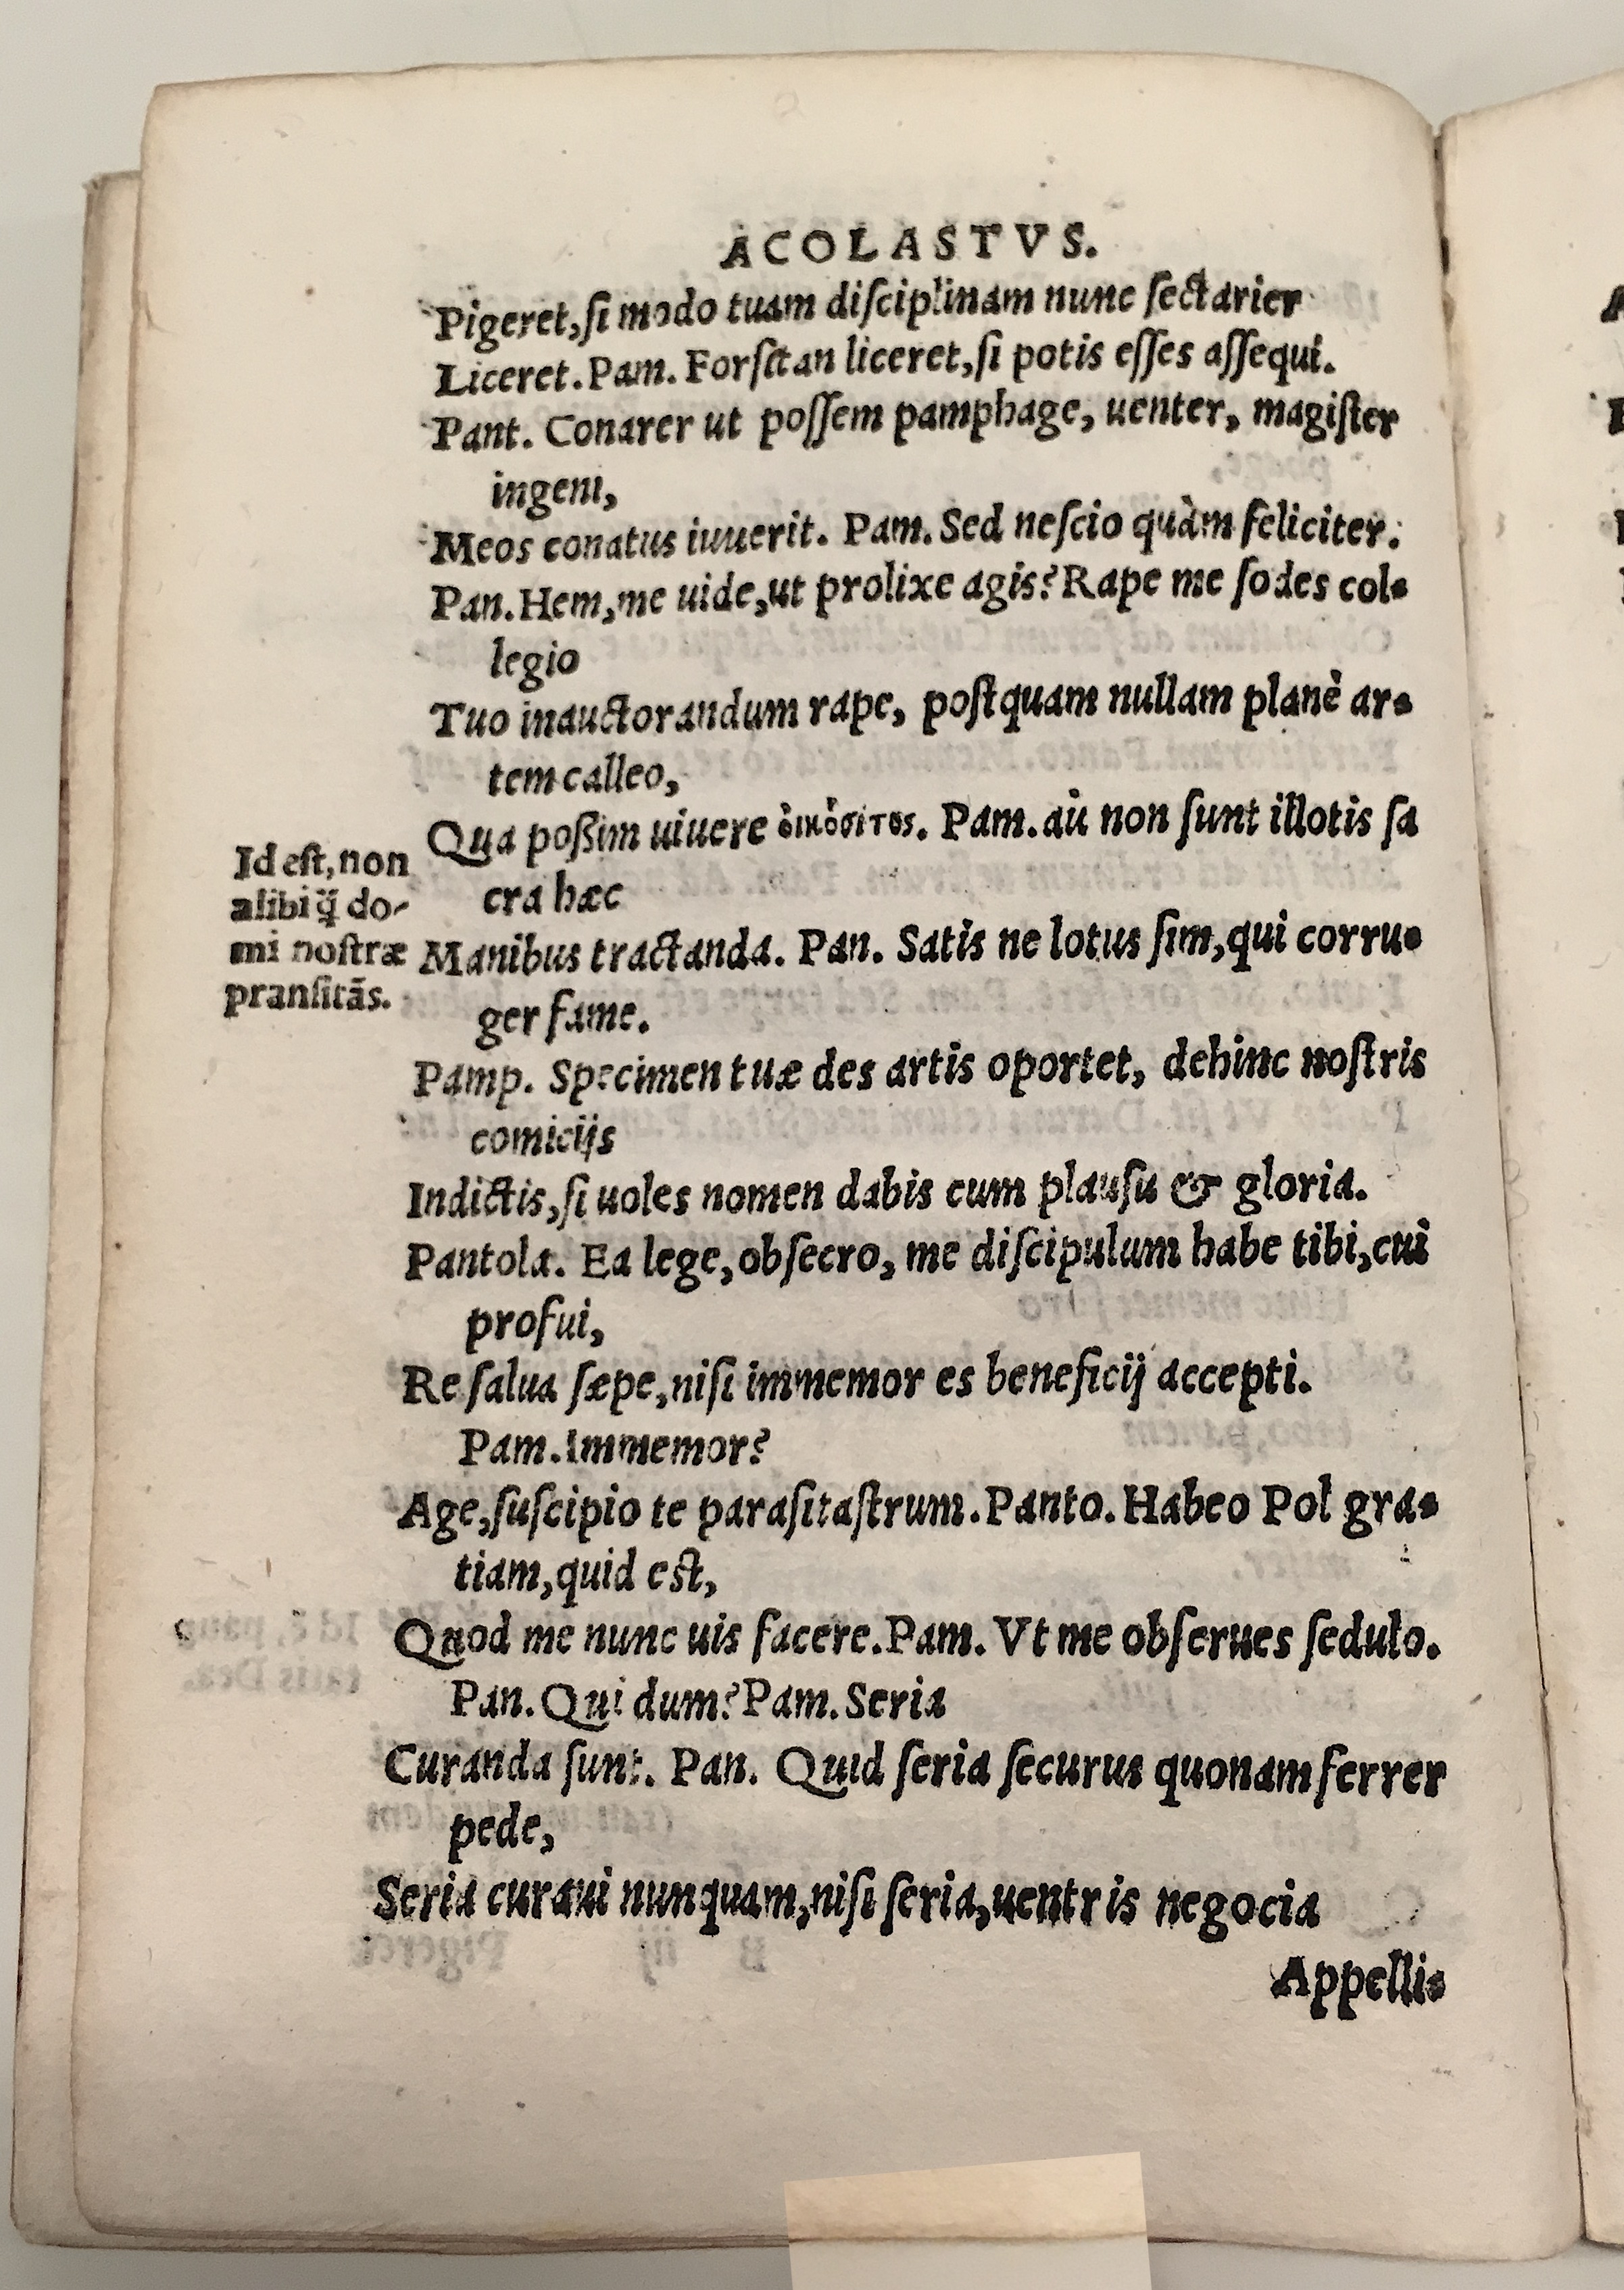 ACOLASTVS.
Pigeret,ſi modo tuam diſciplinam nunc ſectarier
Liceret.Pam. Forſitan liceret,ſi potis eſſes aſſequi.
Pant. Conarer ut poſſem pamphage, uenter, magiſter
ingeni,
Meos conatus iuuerit. Pam. Sed neſcio quàm feliciter.
Pan.Hem,me uide,ut prolixe agis? Rape me ſodes col-
legio
Tuo inauctorandum rape, poſtquam nullam planè ar-
tem calleo,
Qua poßim uiuere ὀικόσιτος. Pam. aù non ſunt illotis ſa
cra hæc
Id eſt, non
alibi q̃ do-
mi noſtræ
pranſitãs.
Manibus tractanda. Pan. Satis ne lotus ſim,qui corru-
ger fame.
Pamp. Specimen tuæ des artis oportet, dehinc noſtris
comicijs
Indictis,ſi uoles nomen dabis cum plauſu & gloria.
Pantola. Ea lege,obſecro, me diſcipulum habe tibi,cui
profui,
Re ſalua ſæpe,niſi immemor es beneficij accepti.
Pam.Immemor?
Age,ſuſcipio te paraſitaſtrum.Panto. Habeo Pol gra-
tiam,quid eſt,
Quod me nunc uis facere.Pam. Vt me obſerues ſedulo.
Pan. Qui dum? Pam. Seria
Curanda ſunt. Pan. Quid ſeria ſecurus quonam ferrer
pede,
Seria curaui nunquam,niſi ſeria,uentris negocia
Appellis